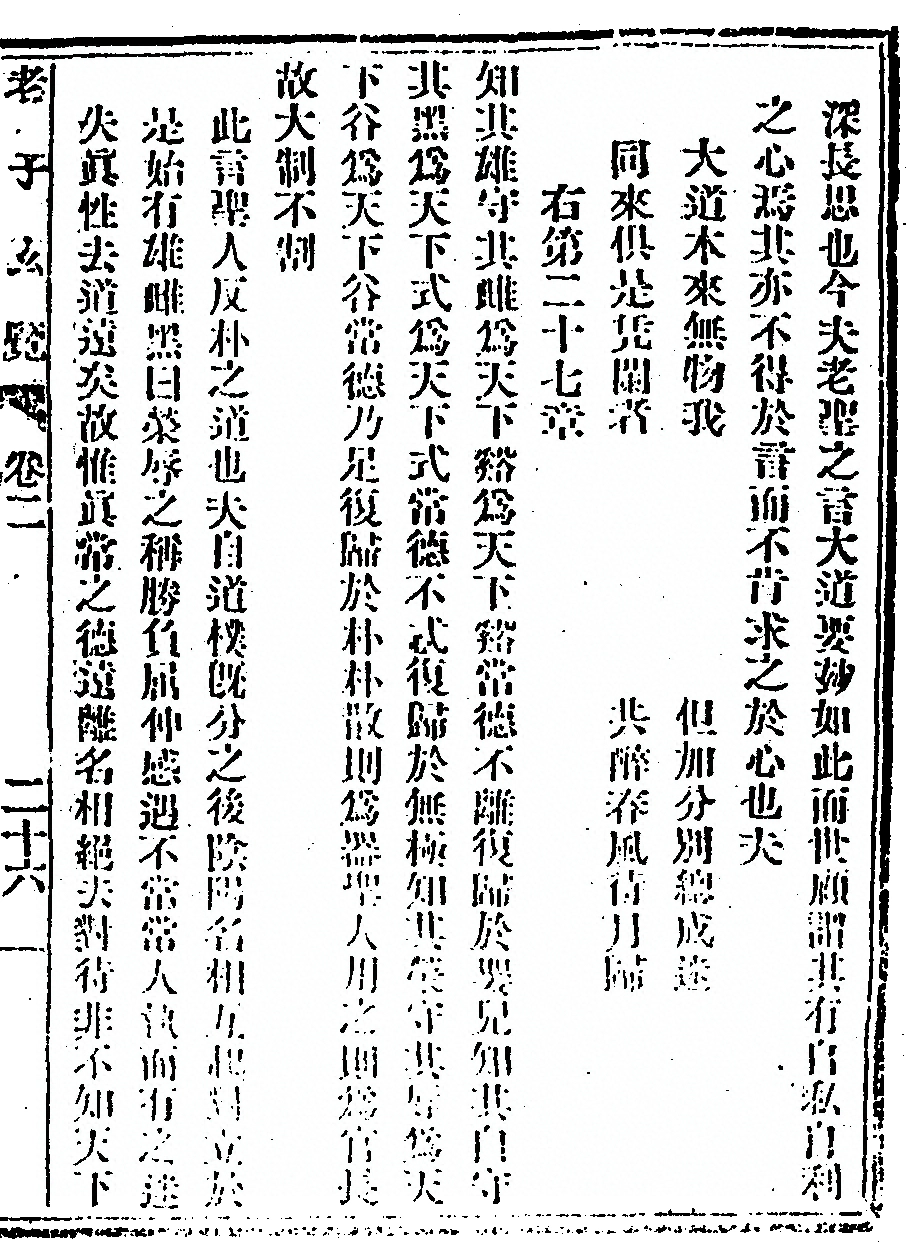 深長思也今夫老聖之言大道要妙如此而世顧謂其有自私自利
之心焉其亦不得於言而不肯求之於心也夫
大道本來無物我　但加分別總成迷
同來俱是凭闌者　共醉春風待月歸
右第二十七章
知其雄守其雌爲天下谿爲天下谿常德不離復歸於嬰兒知其白守
其黑爲天下式爲天下式常德不忒復歸於無極知其榮守其辱爲天
下谷爲天下谷常德乃足復歸於朴朴散則爲器聖人用之則爲官長
故大制不割
此言聖人反朴之道也夫自道樸旣分之後陰陽名相互起對立於
是始有雄雌黑白榮辱之稱勝負屈伸感遇不常常人執而有之迷
失眞性去道遠矣故惟眞常之德遠離名相絕夫對待非不知天下
老子玄覽　卷二　二十六